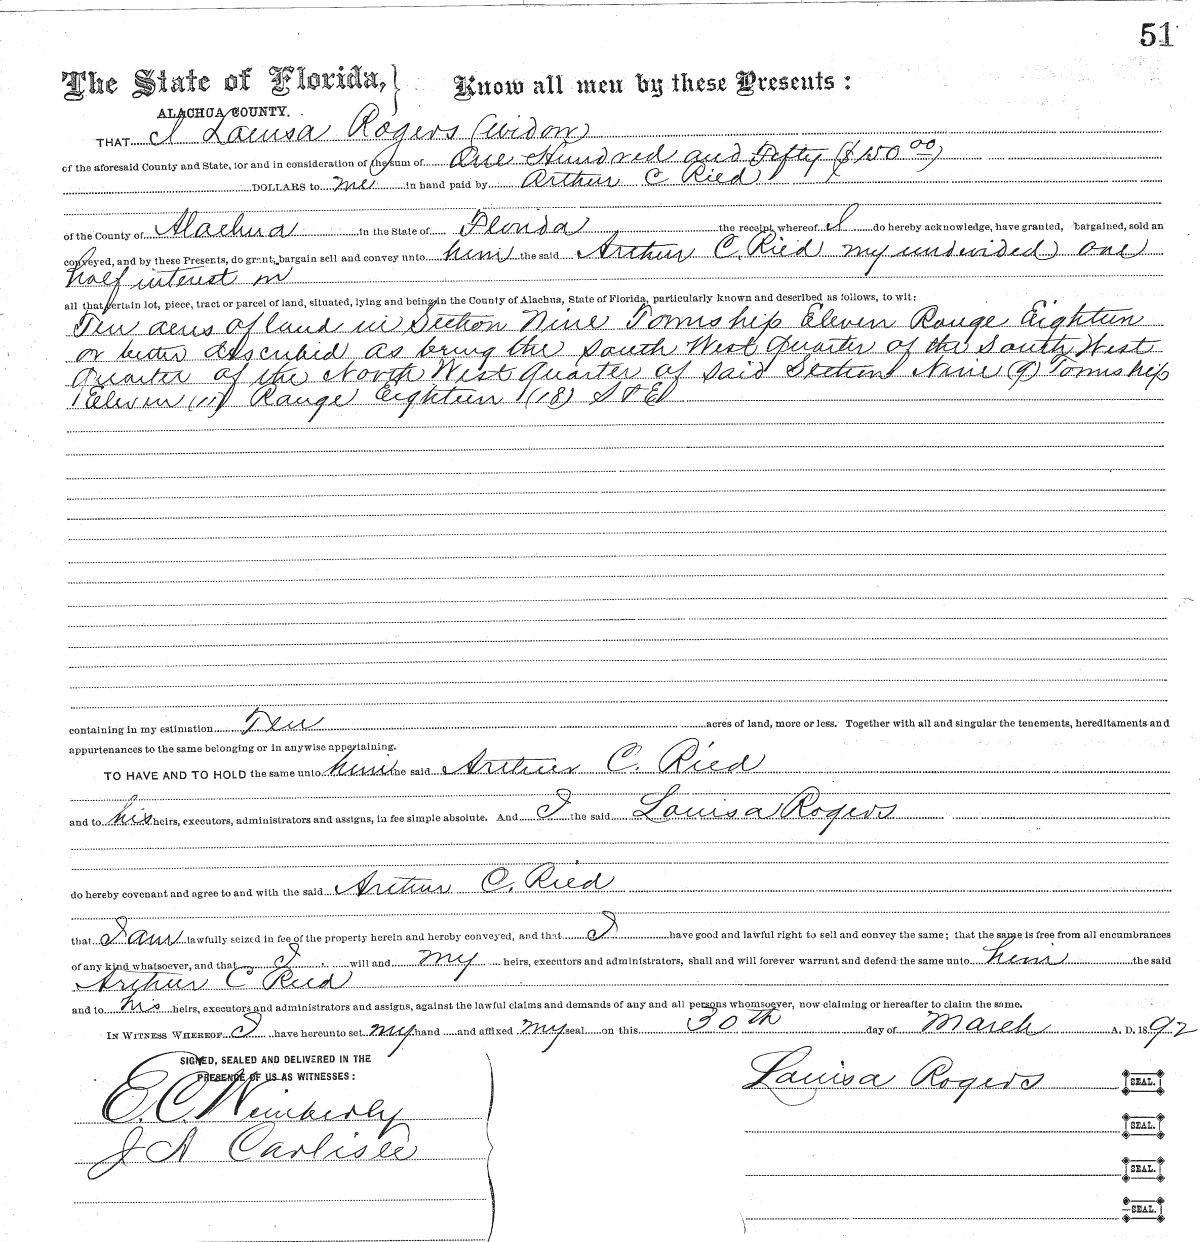 51
The State of Florida, } Know all men by these Presents:
ALACHUA COUNTY.
THAT I Louisa Rogers (widow)
of the aforesaid County and State, for and in consideration of the sum of One Hundred and Fifty ($150 00)
DOLLARS to me in hand paid by Arthur C Ried
of the County of Alachua in the State of Florida the receipt whereof I do hereby acknowledge, have granted, bargained, sold an
conveyed, and by these Presents, do grant, bargain sell and convey unto him the said Arthur C. Ried my undivided one
half interest in
all that certain lot, piece, tract or parcel of land, situated, lying and being in the County of Alachua, State of Florida, particularly known and described as follows, to wit:
Ten acres of land in Section Nine Township Eleven Range Eighteen
or better described as being the South West Quarter of the South West
Quarter of the North West Quarter of said Section Nine (9) Township
Eleven (11) Range Eighteen (18) S & E
containing in my estimation Ten acres of land, more or less. Together with all and singular the tenements, hereditaments and
appurtenances to the same belonging or in anywise appertaining.
TO HAVE AND TO HOLD the same unto him the said Arthur C. Ried
and to his heirs, executors, administrators and assigns, in fee simple absolute. And I the said Louisa Rogers
do hereby covenant and agree to and with the said Arthur C. Ried
that I am lawfully seized in fee of the property herein and hereby conveyed, and that I have good and lawful right to sell and convey the same; that the same is free from all encumbrances
of any kind whatsoever, and that I will and my heirs, executors and administrators, shall and will forever warrant and defend the same unto him the said
Arthur C Ried
and to his heirs, executors and administrators and assigns, against the lawful claims and demands of any and all persons whomsoever, now claiming or hereafter to claim the same.
IN WITNESS WHEREOF I have hereunto set my hand and affixed my seal on this 30th day of March A. D. 1892
SIGNED, SEALED AND DELIVERED IN THE
PRESENCE OF US AS WITNESSES:
Louisa Rogers SEAL.
E. C. Wimberly
SEAL.
J A Carlisle
SEAL.
SEAL.